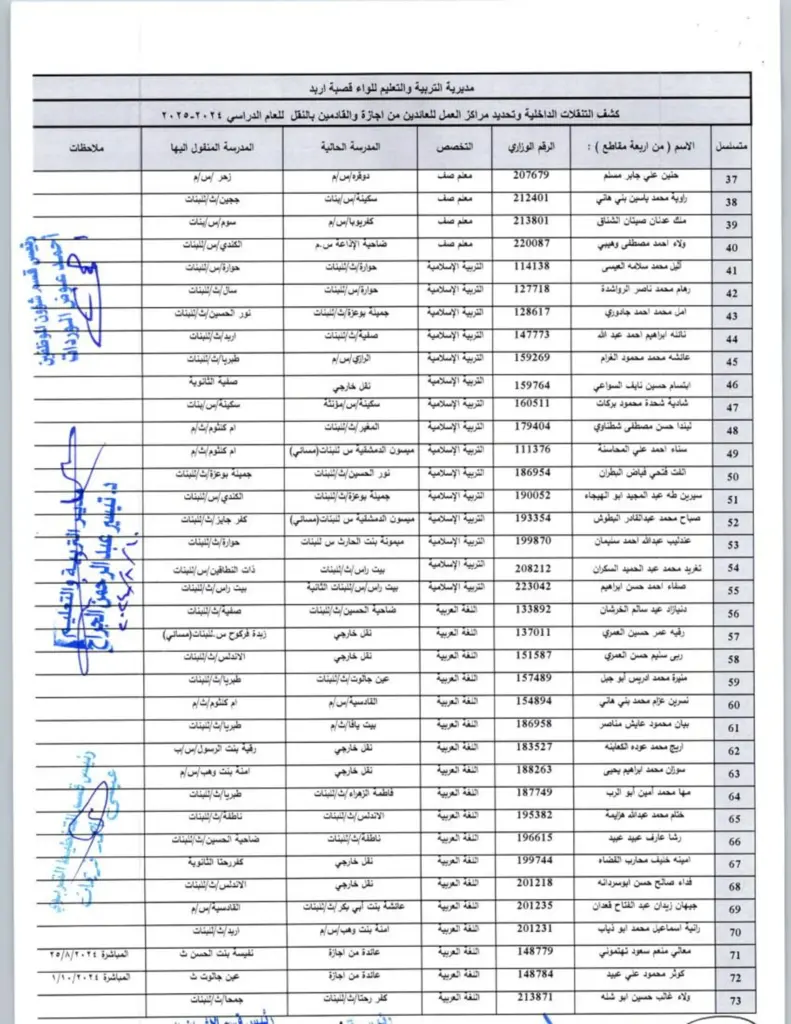 مديرية التربية والتعليم للواء قصبة اربد
كشف التنقلات الداخلية وتحديد مراكز العمل للعائدين من اجازة والقادمين بالنقل للعام الدراسي ٢٠٢٤-٢٠٢٥
متسلسل الاسم ( من اربعة مقاطع ) : الرقم الوزاري التخصص المدرسة الحالية المدرسة المنقول اليها ملاحظات
37 حنين علي جابر مسلم 207679 معلم صف دوقره/س/م زحر /س/م
38 راوية محمد ياسين بني هاني 212401 معلم صف سكينة/س/بنات ججين/ث/للبنات
39 ملك عدنان صيتان الشناق 213801 معلم صف كفريوبا/س/م سوم/س/بنات
40 ولاء احمد مصطفى وهيبي 220087 معلم صف ضاحية الإذاعة س.م الكندي/س/للبنات
41 أليل محمد سلامه العيسى 114138 التربية الإسلامية حوارة/ث/للبنات حوارة/س/للبنات
42 رهام محمد ناصر الرواشدة 127718 التربية الإسلامية حوارة/س/للبنات سال/ث/للبنات
43 امل محمد احمد جادوري 128617 التربية الإسلامية جمينة بوعزة/ث/للبنات نور الحسين/ث/للبنات
44 نائله ابراهيم احمد عبد الله 147773 التربية الإسلامية صفية/ث/للبنات اربد/ث/للبنات
45 عائشه محمد محمود الغرام 159269 التربية الإسلامية الرازي/س/م طبريا/ث/للبنات
46 ابتسام حسين نايف السواعي 159764 التربية الإسلامية نقل خارجي صفية الثانوية
47 شادية شحدة محمود بركات 160511 التربية الإسلامية سكينة/س/مؤنثة سكينة/س/بنات
48 ليندا حسن مصطفى شطناوي 179404 التربية الإسلامية المغير/ث/للبنات ام كلثوم/ث/م
49 سناء احمد علي المحاسنة 111376 التربية الإسلامية ميسون الدمشقية س للبنات(مسائي) ام كلثوم/ث/م
50 الفت فتحي فياض البطران 186954 التربية الإسلامية نور الحسين/ث/للبنات جمينة بوعزة/ث/للبنات
51 سيرين طه عبد المجيد ابو الهيجاء 190052 التربية الإسلامية جمينة بوعزة/ث/للبنات الكندي/س/للبنات
52 صباح محمد عبدالقادر البطوش 193354 التربية الإسلامية ميسون الدمشقية س للبنات(مسائي) كفر جايز/ث/للبنات
53 عندليب عبدالله احمد سليمان 199870 التربية الإسلامية ميمونة بنت الحارث س للبنات حوارة/ث/للبنات
54 تغريد محمد عبد الحميد السكران 208212 التربية الإسلامية بيت راس/ث/للبنات ذات النطاقين/س/للبنات
55 صفاء احمد حسن ابراهيم 223042 التربية الإسلامية بيت راس/س/للبنات الثانية بيت راس/ث/للبنات
56 دنيازاد عيد سالم الخرشان 133892 اللغة العربية ضاحية الحسين/ث/للبنات صفية/ث/للبنات
57 رقيه عمر حسين العمري 137011 اللغة العربية نقل خارجي زبدة فركوح س للبنات(مسائي)
58 ربى سليم حسن العمري 151587 اللغة العربية نقل خارجي الاندلس/ث/للبنات
59 منيرة محمد ادريس أبو جبل 157489 اللغة العربية عين جالوت/ث/للبنات طبريا/ث/للبنات
60 نسرين عزام محمد بني هاني 154894 اللغة العربية القادسية/س/م ام كلثوم/ث/م
61 بيان محمود عايش مناصر 186958 اللغة العربية بيت يافا/ث/م طبريا/ث/للبنات
62 اريج محمد عوده الكعابنه 183527 اللغة العربية نقل خارجي رقية بنت الرسول/س/ب
63 سوزان محمد ابراهيم يحيى 188263 اللغة العربية نقل خارجي امنة بنت وهب/س/م
64 مها محمد أمين أبو الرب 187749 اللغة العربية فاطمة الزهراء/ث/للبنات طبريا/ث/للبنات
65 ختام محمد عبدالله هزايمة 195382 اللغة العربية الاندلس/ث/للبنات ناطفة/ث/للبنات
66 رشا عارف عبيد عبيد 196615 اللغة العربية ناطفة/ث/للبنات ضاحية الحسين/ث/للبنات
67 امينه خنيف محارب القضاه 199744 اللغة العربية نقل خارجي كفررحتا الثانوية
68 فداء صالح حسن ابوسردانه 201218 اللغة العربية نقل خارجي الاندلس/ث/للبنات
69 جيهان زيدان عبد الفتاح قعدان 201235 اللغة العربية عائشة بنت أبي بكر/ث/للبنات القادسية/س/م
70 رانية اسماعيل محمد ابو ذياب 201231 اللغة العربية امنة بنت وهب/س/م اربد/ث/للبنات
71 معالي منعم سعود تهتموني 148779 اللغة العربية عائدة من اجازة نفيسة بنت الحسن ث المباشرة ٢٥/٨/٢٠٢٤
72 كوثر محمود علي عبيد 148784 اللغة العربية عائدة من اجازة عين جالوت ث المباشرة ١/١٠/٢٠٢٤
73 ولاء غالب حسين ابو شله 213871 اللغة العربية كفر رحتا/ث/للبنات جمحا/ث/للبنات
رئيس قسم شؤون الموظفين
أحمد عوض الوردات
مدير التربية والتعليم
د. تيسير عبدالرحمن الجراح
رئيس قسم التخطيط التربوي